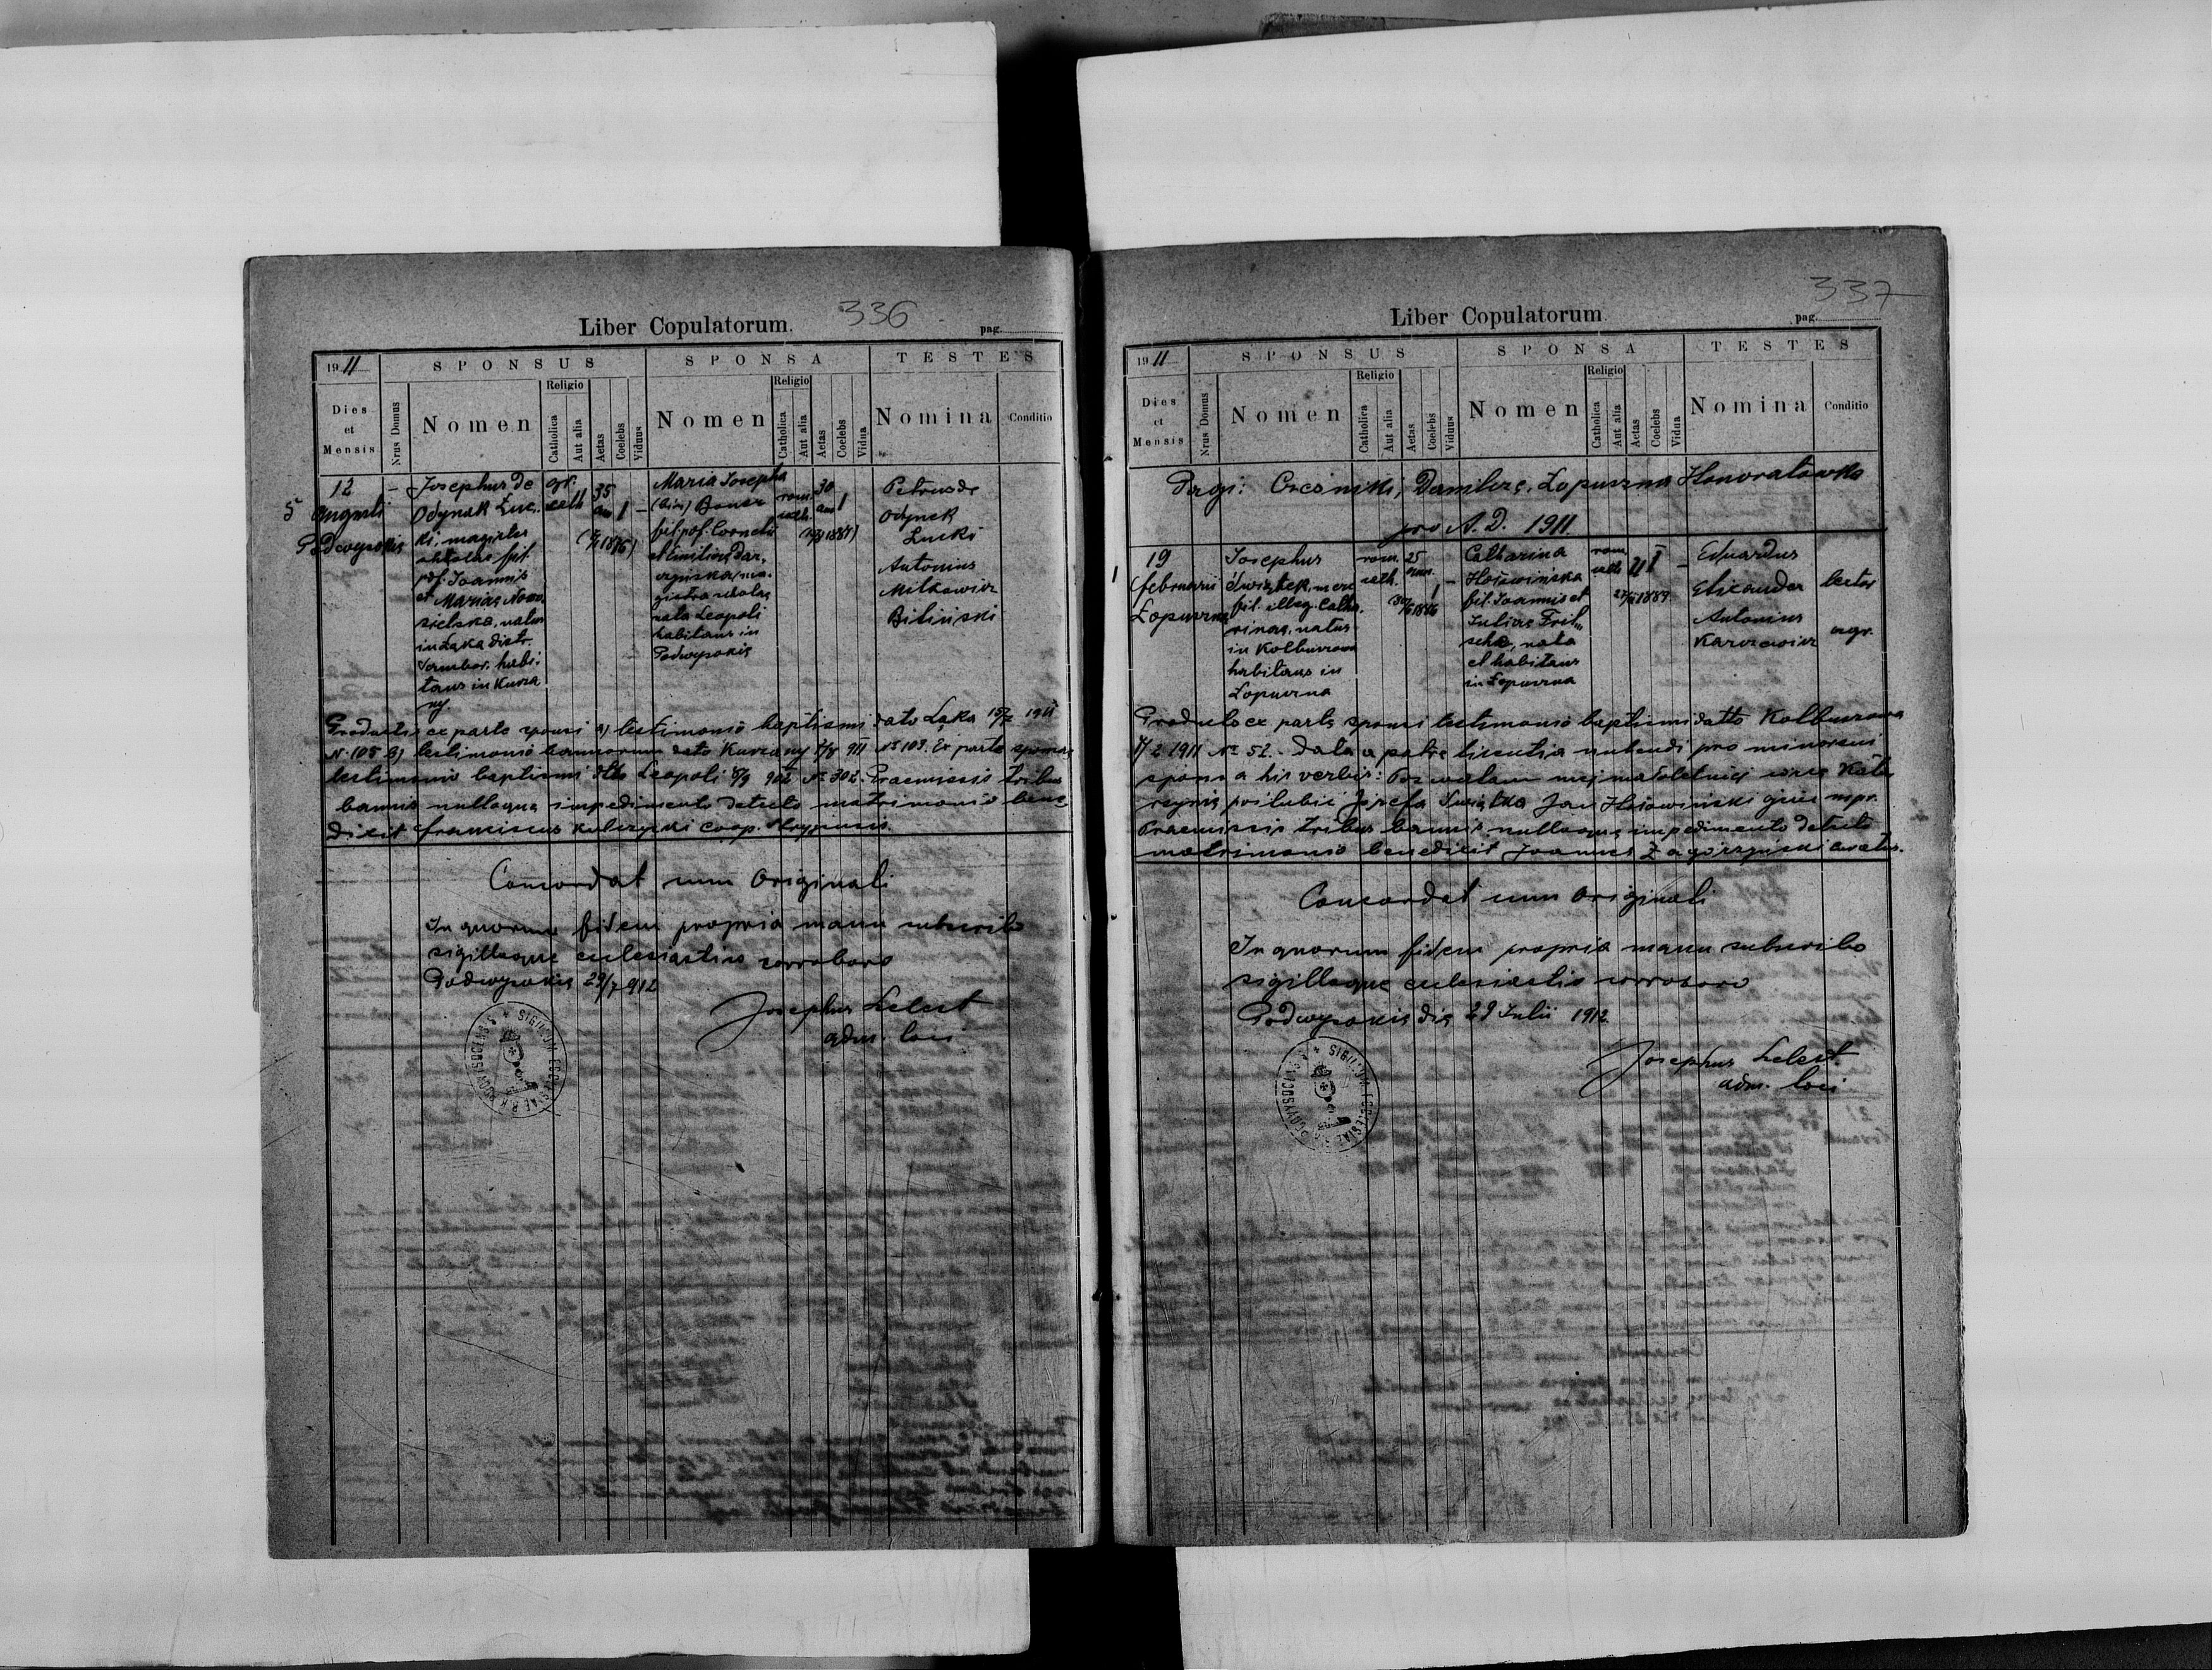 336
Liber Copulatorum.
pag.
1911
SPONSUS
SPONSA
TESTES
Dies et Mensis
Nrus Domus
Nomen
Religio
Catholica
Aut alia
Aetas
Coelebs
Viduus
Nomen
Religio
Catholica
Aut alia
Aetas
Coelebs
Vidua
Nomina
Conditio
5
12
Augusti
Podwysokie
-
Josephus de
Odynak Luc
ki, magister
scholae fil.
pof. Joannis
et Mariae Nowo
sielska, natus
in Łąka distr.
Sambor, habi
tans in Kurza
ny.
gr.
cath
35
an
1
-
Maria Josepha
(bin) Bauer
fil. pof. Cornelii
et Emiliae Dar
magistra scholae
nata Leopoli
habitans in
Podwysokie
rom.
cath.
30
an
1
Petrus de
Odynek
Lucki
Antonius
Mitkowicz
Biliński
Productis ex parte sponsi a) testimonio baptismi dato Łąka 1911
N. 105 b) testimonio bannorum dato Kurzany 911 N. 103. Ex parte sponsae
testimonio baptismi dtto Leopoli 902 N. 302. Praemissis tribus
bannis nulloque impedimento detecto matrimonio bene
dixit Franciscus Kulczycki coop.
Concordat cum Originali
In quorum fidem propria manu subscribo
sigilloque ecclesiastico corroboro
Podwysokie 29/7 912
Josephus Lelest
adm. loci
337
Liber Copulatorum
pag.
1911
SPONSUS
SPONSA
TESTES
Dies et Mensis
Nrus Domus
Nomen
Religio
Catholica
Aut alia
Aetas
Coelebs
Viduus
Nomen
Religio
Catholica
Aut alia
Aetas
Coelebs
Vidua
Nomina
Conditio
Pagi: Cześniki, Danilcze, Łopuszna Honoratówka
pro A. D. 1911.
1
19
februarii
Łopuszna
Josephus
Świątek, merc
fil. illeg. Catha
rinae, natus
in Kolbuszowa
habitans in
Łopuszna
rom.
cath.
25
ann.
1
-
Catharina
Hołowińska
fil. Joannis et
Juliae Frit
schke, nata
et habitans
in Łopuszna
rom.
cath
21
1
-
Eduardus
Antonius
Karczewicz
agr.
Producto ex parte sponsi testimonio baptismi datto Kolbuszowa
2 1911 N. 52. Data a patre licentia nubendi pro minoreni
sponsa his verbis: Pozwalam mej małoletniej córce Kata
rzynie poślubić Józefa Świątka Jan Hołowiński ojciec mpr.
Praemissis tribus bannis nulloque impedimento detecto
matrimonio benedixit Joannes Zagórzyński curatus.
Concordat cum Originali
In quorum fidem propria manu subscribo
sigilloque ecclesiastico corroboro
Podwysokie die 29 Julii 1912
Josephus Lelest
adm. loci